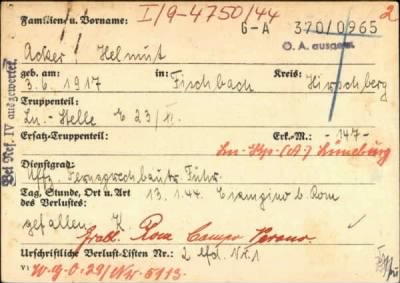 Familien- u. Vorname: I/9-4750/44 2
G-A 370/0965
Acker, Helmut O. A. ausgew.
geb. am: in: Kreis:
3.6.1917 Fischbach Hirschberg
Truppenteil:
Ln.-Stelle 23/II.
Ersatz-Truppenteil: Erk.-M.: -147-
Ln. (A.) Lüneburg
Dienstgrad:
Uffz.
Tag, Stunde, Ort u. Art des Verlustes: 13.1.44. b. Rom
gefallen K
Grabl. Rom Campo Verano.
Urschriftliche Verlust-Listen Nr.: 2 lfd. Nr. 1
VI: W.G.O. 29/Nr. 5113.
Bei Ref. IV ausgewertet.